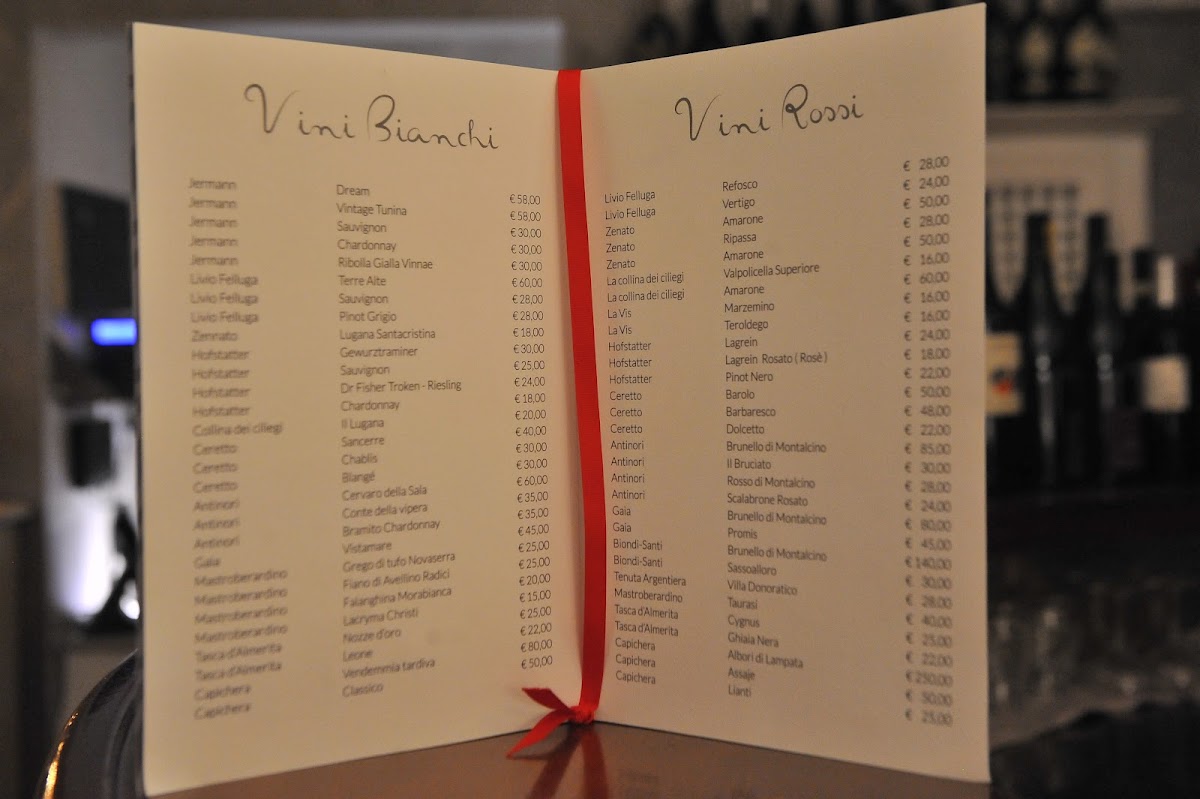 Vini Bianchi
Jermann Dream € 58,00
Jermann Vintage Tunina € 58,00
Jermann Sauvignon € 30,00
Jermann Chardonnay € 30,00
Jermann Ribolla Gialla Vinnae € 30,00
Livio Felluga Terre Alte € 60,00
Livio Felluga Sauvignon € 28,00
Livio Felluga Pinot Grigio € 28,00
Zennato Lugana Santacristina € 18,00
Hofstatter Gewurztraminer € 30,00
Hofstatter Sauvignon € 25,00
Hofstatter Dr Fisher Troken - Riesling € 24,00
Hofstatter Chardonnay € 18,00
Collina dei ciliegi Il Lugana € 20,00
Ceretto Sancerre € 40,00
Ceretto Chablis € 30,00
Ceretto Blangé € 30,00
Antinori Cervaro della Sala € 60,00
Antinori Conte della vipera € 35,00
Antinori Bramito Chardonnay € 35,00
Gaia Vistamare € 45,00
Mastroberardino Grego di tufo Novaserra € 25,00
Mastroberardino Fiano di Avellino Radici € 25,00
Mastroberardino Falanghina Morabianca € 20,00
Mastroberardino Lacryma Christi € 15,00
Tasca d'Almerita Nozze d'oro € 25,00
Tasca d'Almerita Leone € 22,00
Capichera Vendemmia tardiva € 80,00
Capichera Classico € 50,00
Vini Rossi
Livio Felluga Refosco € 28,00
Livio Felluga Vertigo € 24,00
Zenato Amarone € 50,00
Zenato Ripassa € 28,00
Zenato Amarone € 50,00
La collina dei ciliegi Valpolicella Superiore € 16,00
La collina dei ciliegi Amarone € 60,00
La Vis Marzemino € 16,00
La Vis Teroldego € 16,00
Hofstatter Lagrein € 24,00
Hofstatter Lagrein Rosato ( Rosè ) € 18,00
Hofstatter Pinot Nero € 22,00
Ceretto Barolo € 50,00
Ceretto Barbaresco € 48,00
Ceretto Dolcetto € 22,00
Antinori Brunello di Montalcino € 85,00
Antinori Il Bruciato € 30,00
Antinori Rosso di Montalcino € 28,00
Antinori Scalabrone Rosato € 24,00
Gaia Brunello di Montalcino € 80,00
Gaia Promis € 45,00
Biondi-Santi Brunello di Montalcino € 140,00
Biondi-Santi Sassoalloro € 30,00
Tenuta Argentiera Villa Donoratico € 28,00
Mastroberardino Taurasi € 40,00
Tasca d'Almerita Cygnus € 25,00
Tasca d'Almerita Ghiaia Nera € 22,00
Capichera Albori di Lampata € 250,00
Capichera Assaje € 50,00
Capichera Lianti € 25,00